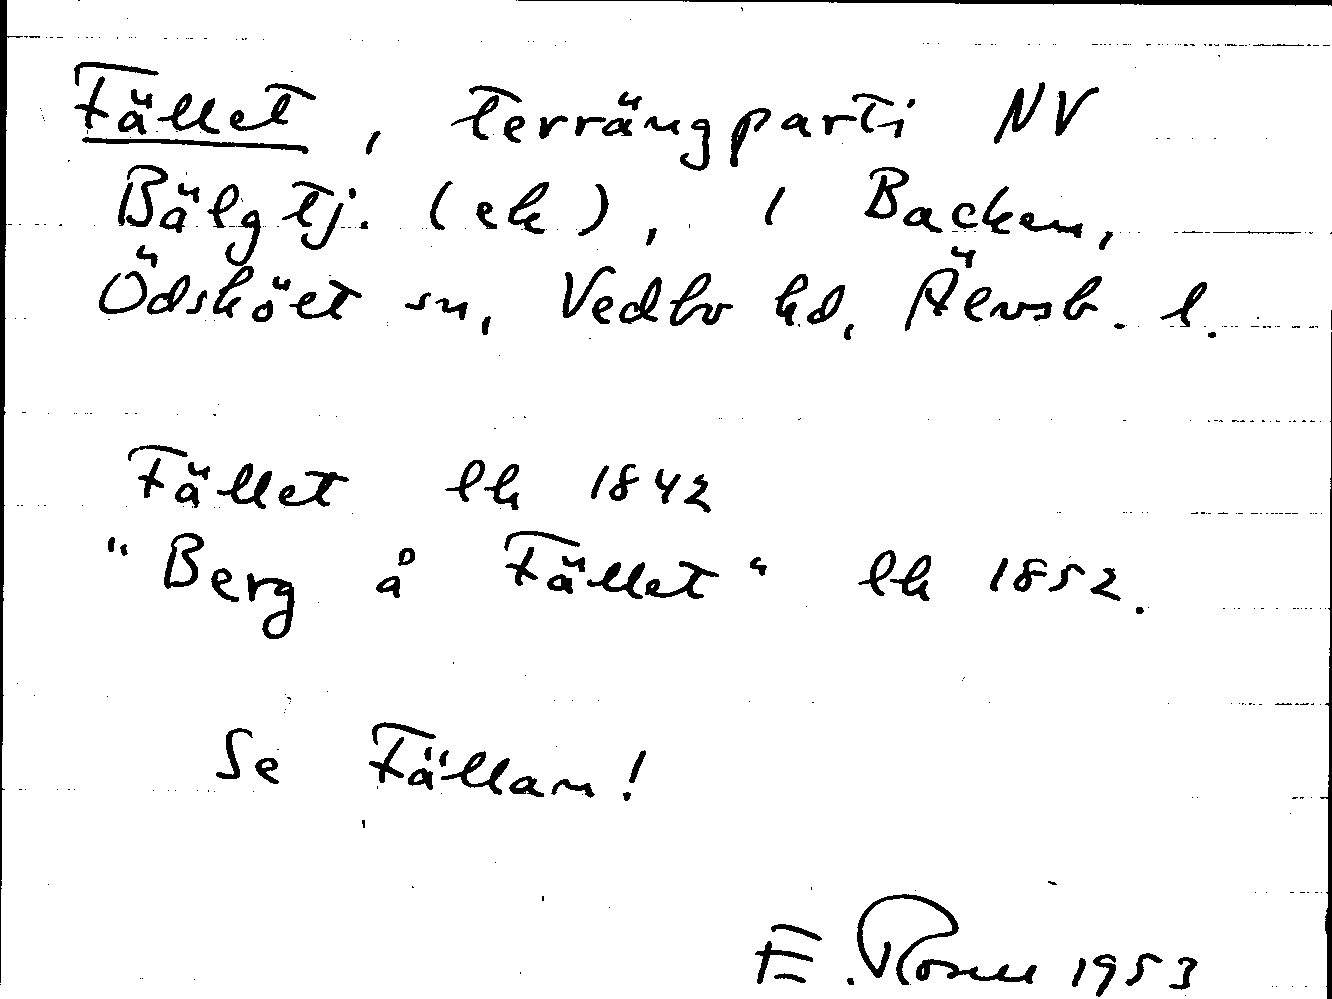 Fället, terrängparti NV
Bälgtj. (ek), i Backen,
Ödsköet sn, Vedbo hd, Älvsb. l.
Fället lk 1842
"Berg å Fället" lk 1852.
Se Fällan!
E. 1953